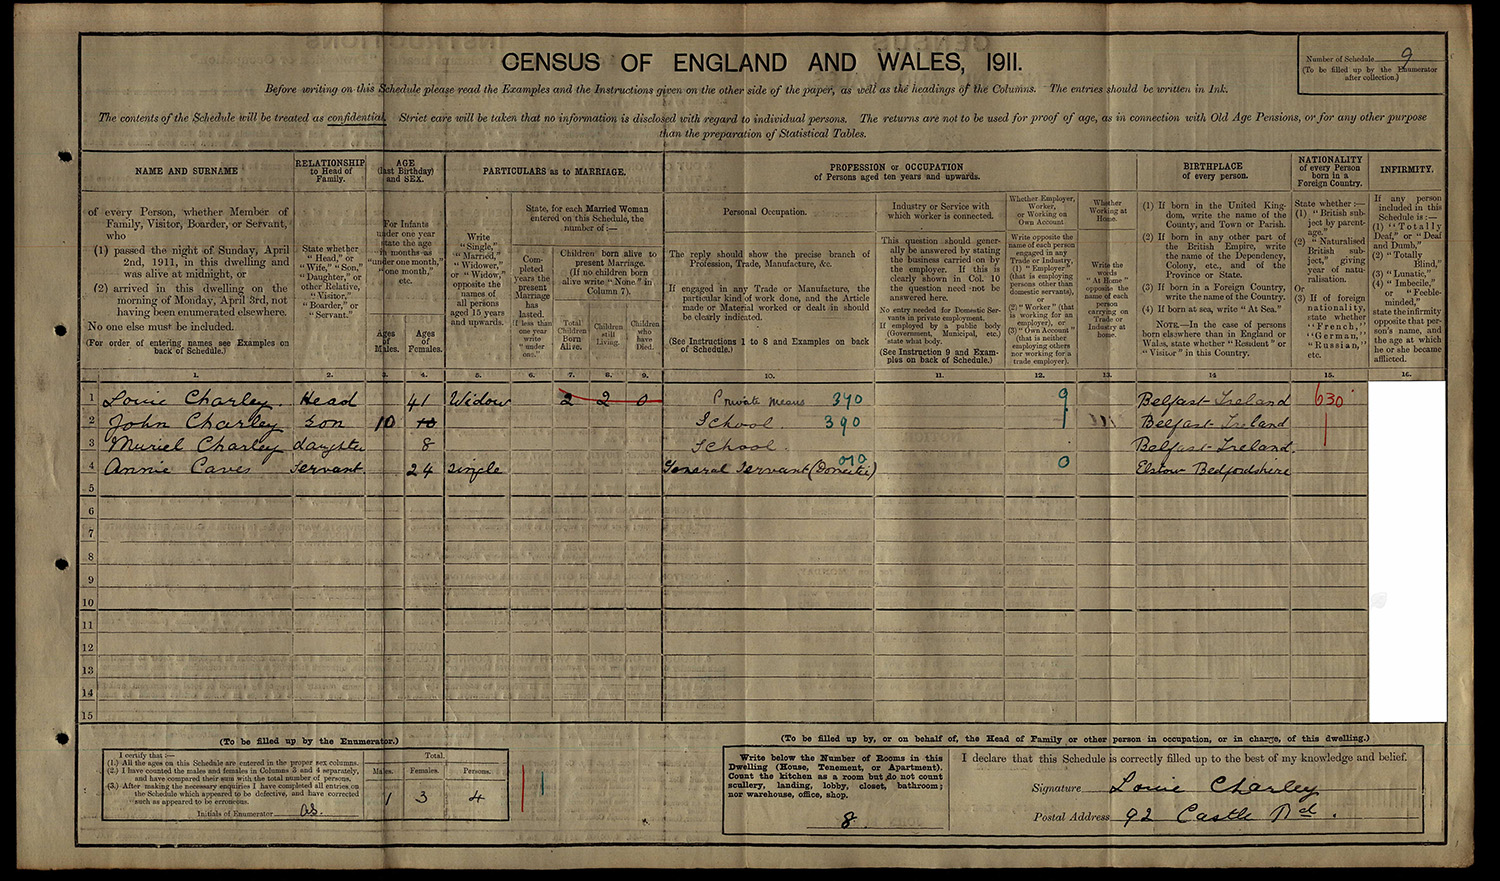 CENSUS OF ENGLAND AND WALES, 1911.
Number of Schedule 9
(To be filled up by the Enumerator
after collection.)
Before writing on this Schedule please read the Examples and the Instructions given on the other side of the paper, as well as the headings of the Columns. The entries should be written in Ink.
The contents of the Schedule will be treated as confidential. Strict care will be taken that no information is disclosed with regard to individual persons. The returns are not to be used for proof of age, as in connection with Old Age Pensions, or for any other purpose
than the preparation of Statistical Tables.
NAME AND SURNAME
of every Person, whether Member of
Family, Visitor, Boarder, or Servant,
who
(1) passed the night of Sunday, April
2nd, 1911, in this dwelling and
was alive at midnight, or
(2) arrived in this dwelling on the
morning of Monday, April 3rd, not
having been enumerated elsewhere.
No one else must be included.
(For order of entering names see Examples on
back of Schedule.)
RELATIONSHIP
to Head of
Family.
State whether
"Head," or
"Wife," "Son,"
"Daughter," or
other Relative,
"Visitor,"
"Boarder," or
"Servant."
AGE
(last Birthday)
and SEX.
For Infants
under one year
state the age
in months as
"under one month,"
"one month,"
etc.
Ages
of
Males.
Ages
of
Females.
PARTICULARS as to MARRIAGE.
Write
"Single,"
"Married,"
"Widower,"
or "Widow,"
opposite the
names of
all persons
aged 15 years
and upwards.
State, for each Married Woman
entered on this Schedule, the
number of:—
Completed
years the
present
Marriage
has
lasted.
If less than
one year
write
"under
one."
Children born alive to
present Marriage.
(If no children born
alive write "None" in
Column 7).
Total
Children
Born
Alive.
Children
still
Living.
Children
who
have
Died.
PROFESSION or OCCUPATION
of Persons aged ten years and upwards.
Personal Occupation.
The reply should show the precise branch of
Profession, Trade, Manufacture, &c.
If engaged in any Trade or Manufacture, the
particular kind of work done, and the Article
made or Material worked or dealt in should
be clearly indicated.
(See Instructions 1 to 8 and Examples on back
of Schedule.)
Industry or Service with
which worker is connected.
This question should gener-
ally be answered by stating
the business carried on by
the employer. If this is
clearly shown in Col. 10
the question need not be
answered here.
No entry needed for Domestic Ser-
vants in private employment.
If employed by a public body
(Government, Municipal, etc.)
state what body.
(See Instruction 9 and Exam-
ples on back of Schedule.)
Whether Employer,
Worker,
or Working on
Own Account
Write opposite the
name of each person
engaged in any
Trade or Industry,
(1) "Employer"
(that is employing
persons other than
domestic servants),
or
(2) "Worker" (that
is working for an
employer), or
(3) "Own Account"
(that is neither
employing others
nor working for a
trade employer).
Whether
Working at
Home.
Write the
words
"At Home"
opposite the
name of each
person
carrying on
Trade or
Industry at
home.
BIRTHPLACE
of every person.
(1) If born in the United King-
dom, write the name of the
County, and Town or Parish.
(2) If born in any other part of
the British Empire, write
the name of the Dependency,
Colony, etc., and of the
Province or State.
(3) If born in a Foreign Country,
write the name of the Country.
(4) If born at sea, write "At Sea."
NOTE.—In the case of persons
born elsewhere than in England or
Wales, state whether "Resident" or
"Visitor" in this Country.
NATIONALITY
of every Person
born in a
Foreign Country.
State whether:—
(1) "British sub-
ject by parent-
age,"
(2) "Naturalised
British sub-
ject," giving
year of natu-
ralisation.
Or
(3) If of foreign
nationality,
state whether
"French,"
"German,"
"Russian,"
etc.
INFIRMITY.
If any person
included in this
Schedule is:—
(1) "Totally
Deaf," or "Deaf
and Dumb,"
(2) "Totally
Blind,"
(3) "Lunatic,"
(4) "Imbecile,"
or "Feeble-
minded,"
state the infirmity
opposite that per-
son's name, and
the age at which
he or she became
afflicted.
1. 2. 3. 4. 5. 6. 7. 8. 9. 10. 11. 12. 13. 14 15. 16.
1 Louie Charley. Head 41 Widow 2 2 0 Private means 390 9 Belfast Ireland 630
2 John Charley Son 10 10 School 390 Belfast Ireland
3 Muriel Charley daughter 8 School. Belfast Ireland.
4 Annie Caves Servant. 24 Single General Servant (Domestic) 010 0 Elstow Bedfordshire
5
6
7
8
9
10
11
12
13
14
15
(To be filled up by the Enumerator.)
I certify that:—
(1.) All the ages on this Schedule are entered in the proper sex columns.
(2.) I have counted the males and females in Columns 3 and 4 separately,
and have compared their sum with the total number of persons.
(3.) After making the necessary enquiries I have completed all entries on
the Schedule which appeared to be defective, and have corrected
such as appeared to be erroneous.
Initials of Enumerator
Total.
Males. Females. Persons.
1 3 4
(To be filled up by, or on behalf of, the Head of Family or other person in occupation, or in charge, of this dwelling.)
Write below the Number of Rooms in this
Dwelling (House, Tenement, or Apartment).
Count the kitchen as a room but do not count
scullery, landing, lobby, closet, bathroom;
nor warehouse, office, shop.
8.
I declare that this Schedule is correctly filled up to the best of my knowledge and belief.
Signature Louie Charley
Postal Address 92 Castle Rd.